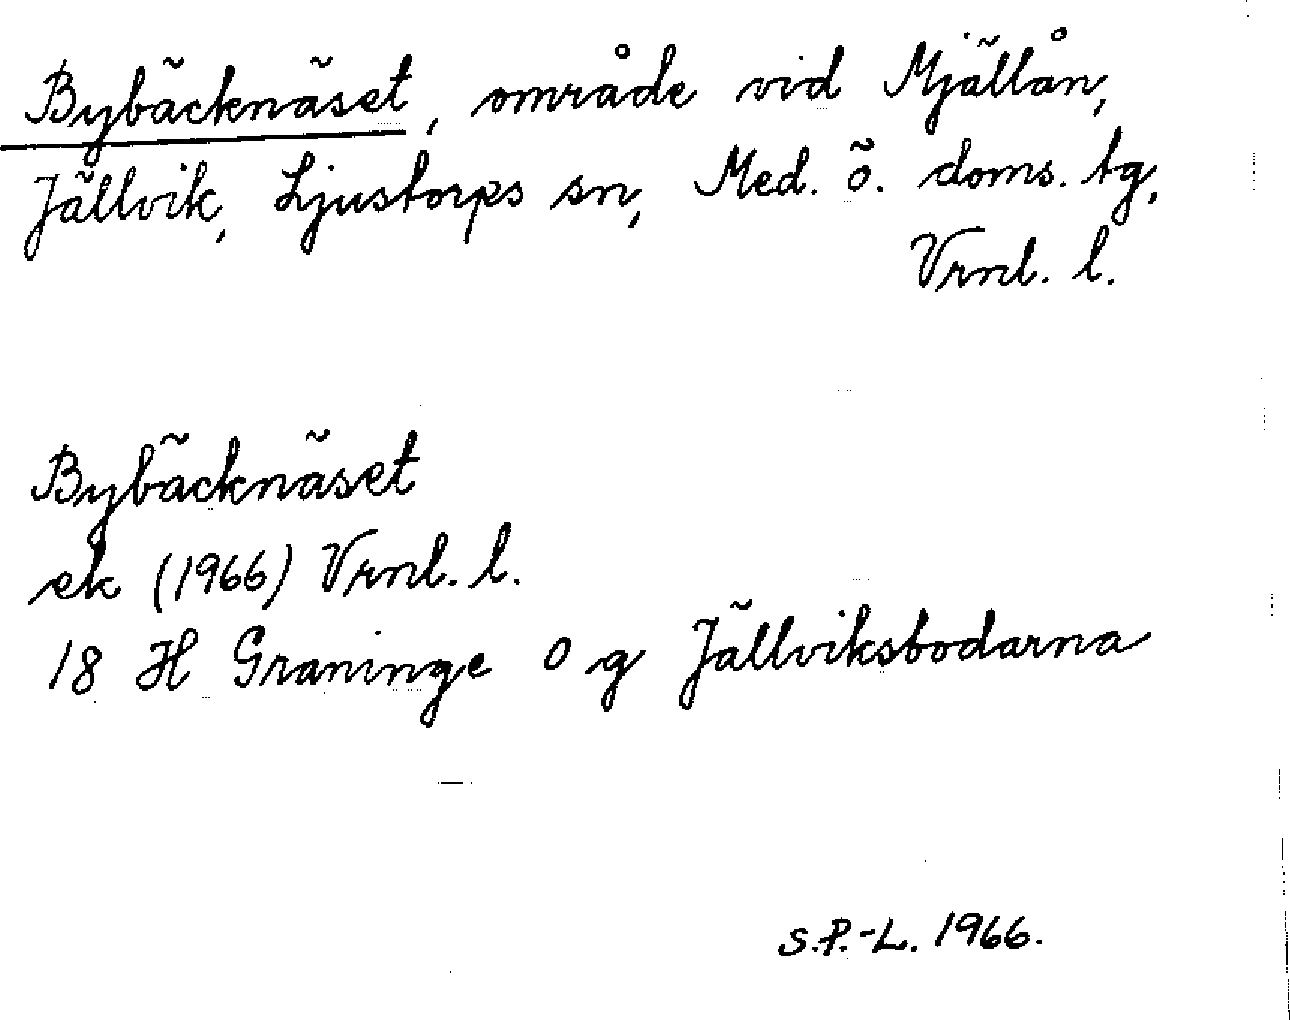 Bybäcknäset, område vid Mjällån,
Jällvik, Ljustorps sn, Med. ö. doms. tg,
Vrnl. l.
Bybäcknäset
ek (1966) Vrnl. l.
18 H Graninge O g Jällviksbodarna
S.P.-L. 1966.